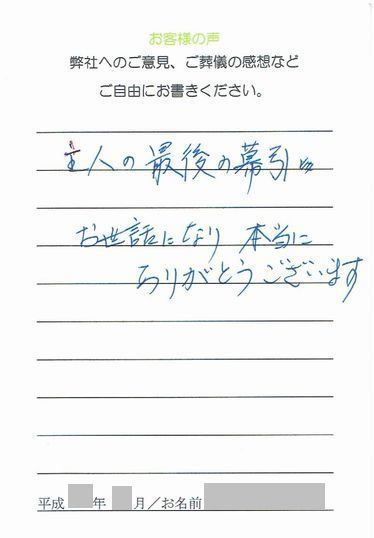 お客様の声
弊社へのご意見、ご葬儀の感想など
ご自由にお書きください。
主人の最後の幕引に
お世話になり 本当に
ありがとうございます
平成 年 月/お名前